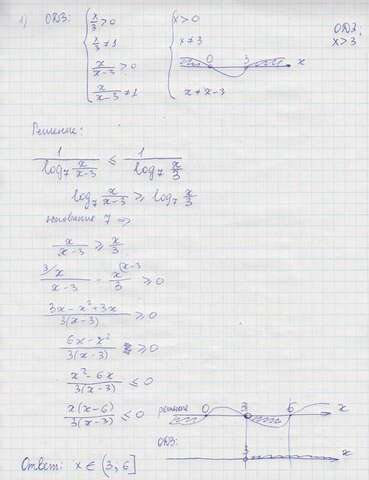 1) ОДЗ: { x/3 > 0 { x > 0
x/3 ≠ 1 x ≠ 3 ОДЗ:
x/(x-3) > 0 0 3 x x > 3
x/(x-3) ≠ 1 x ≠ x-3
Решение:
1/(log₇ x/(x-3)) ≤ 1/(log₇ x/3)
log₇ x/(x-3) ≥ log₇ x/3
основание 7 ⇒
x/(x-3) ≥ x/3
3/x/(x-3) - x(x-3/3 ≥ 0
(3x - x² + 3x)/(3(x-3)) ≥ 0
(6x - x²)/(3(x-3)) ≥ 0
(x² - 6x)/(3(x-3)) ≤ 0
x(x-6)/(3(x-3)) ≤ 0 решение 0 3 6 x
ОДЗ: 3 x
Ответ: x ∈ (3; 6]